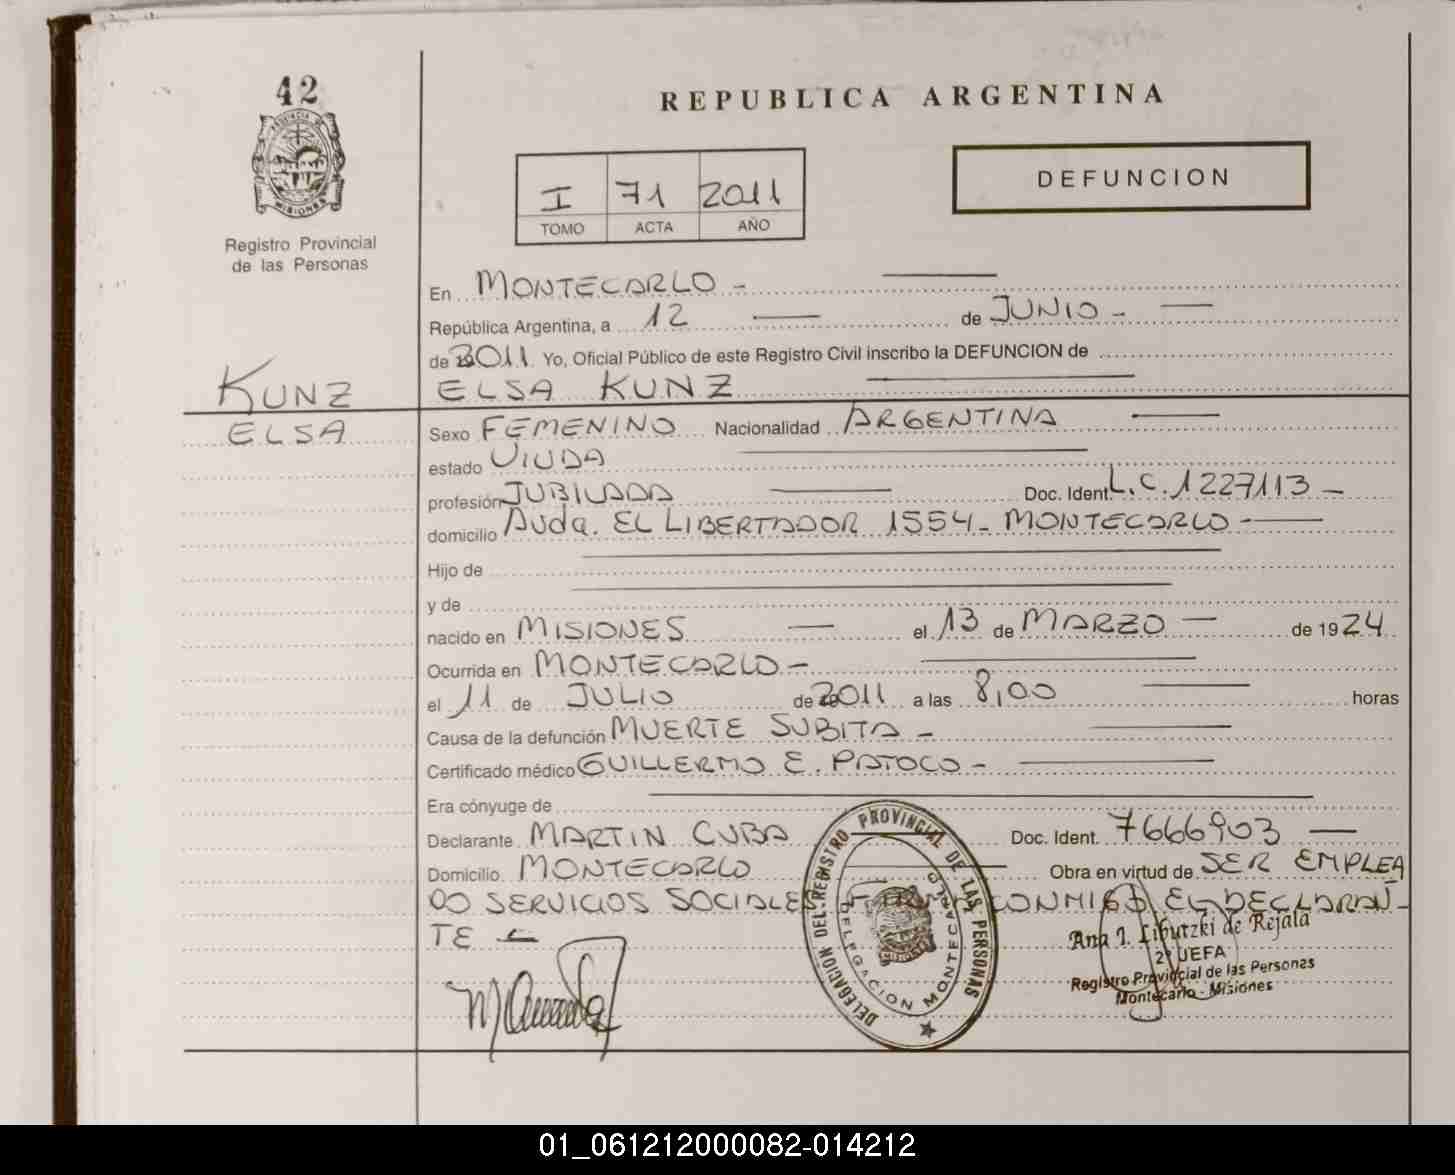 42
PROVINCIA DE
MISIONES
Registro Provincial
de las Personas
KUNZ
ELSA
REPUBLICA ARGENTINA
I 71 2011
TOMO ACTA AÑO
DEFUNCION
En MONTECARLO -
República Argentina, a 12 de JUNIO -
de 2011 Yo, Oficial Público de este Registro Civil inscribo la DEFUNCION de
ELSA KUNZ
Sexo FEMENINO Nacionalidad ARGENTINA
estado VIUDA
profesión JUBILADA Doc. Ident. L.C. 1227113 -
domicilio Avda. EL LIBERTADOR 1554 - MONTECARLO -
Hijo de
y de
nacido en MISIONES el 13 de MARZO de 1924
Ocurrida en MONTECARLO -
el 11 de JULIO de 2011 a las 8,00 horas
Causa de la defunción MUERTE SUBITA -
Certificado médico GUILLERMO E. PATOCO -
Era cónyuge de
Declarante MARTIN CUBA Doc. Ident. 7666903
Domicilio MONTECARLO Obra en virtud de SER EMPLEA
DO SERVICIOS SOCIALES FIRMA CONMIGO EL DECLARAN-
TE -
DELEGACION DEL REGISTRO PROVINCIAL DE LAS PERSONAS
DELEGACION MONTECARLO
MISIONES
Ana I. Liputzki de Rejala
2º JEFA
Registro Provincial de las Personas
Montecarlo - Misiones
01_061212000082-014212